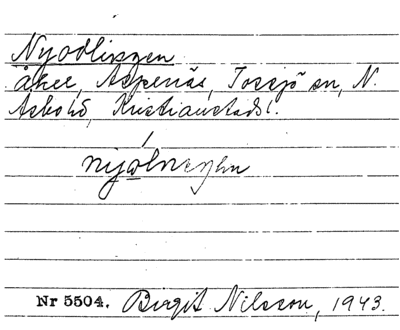 Nyodlingen
åker, Aspenäs, Tossjö sn, N.
Åsbo hd, Kristianstads l.
Nr 5504. Birgit Nilsson, 1943.